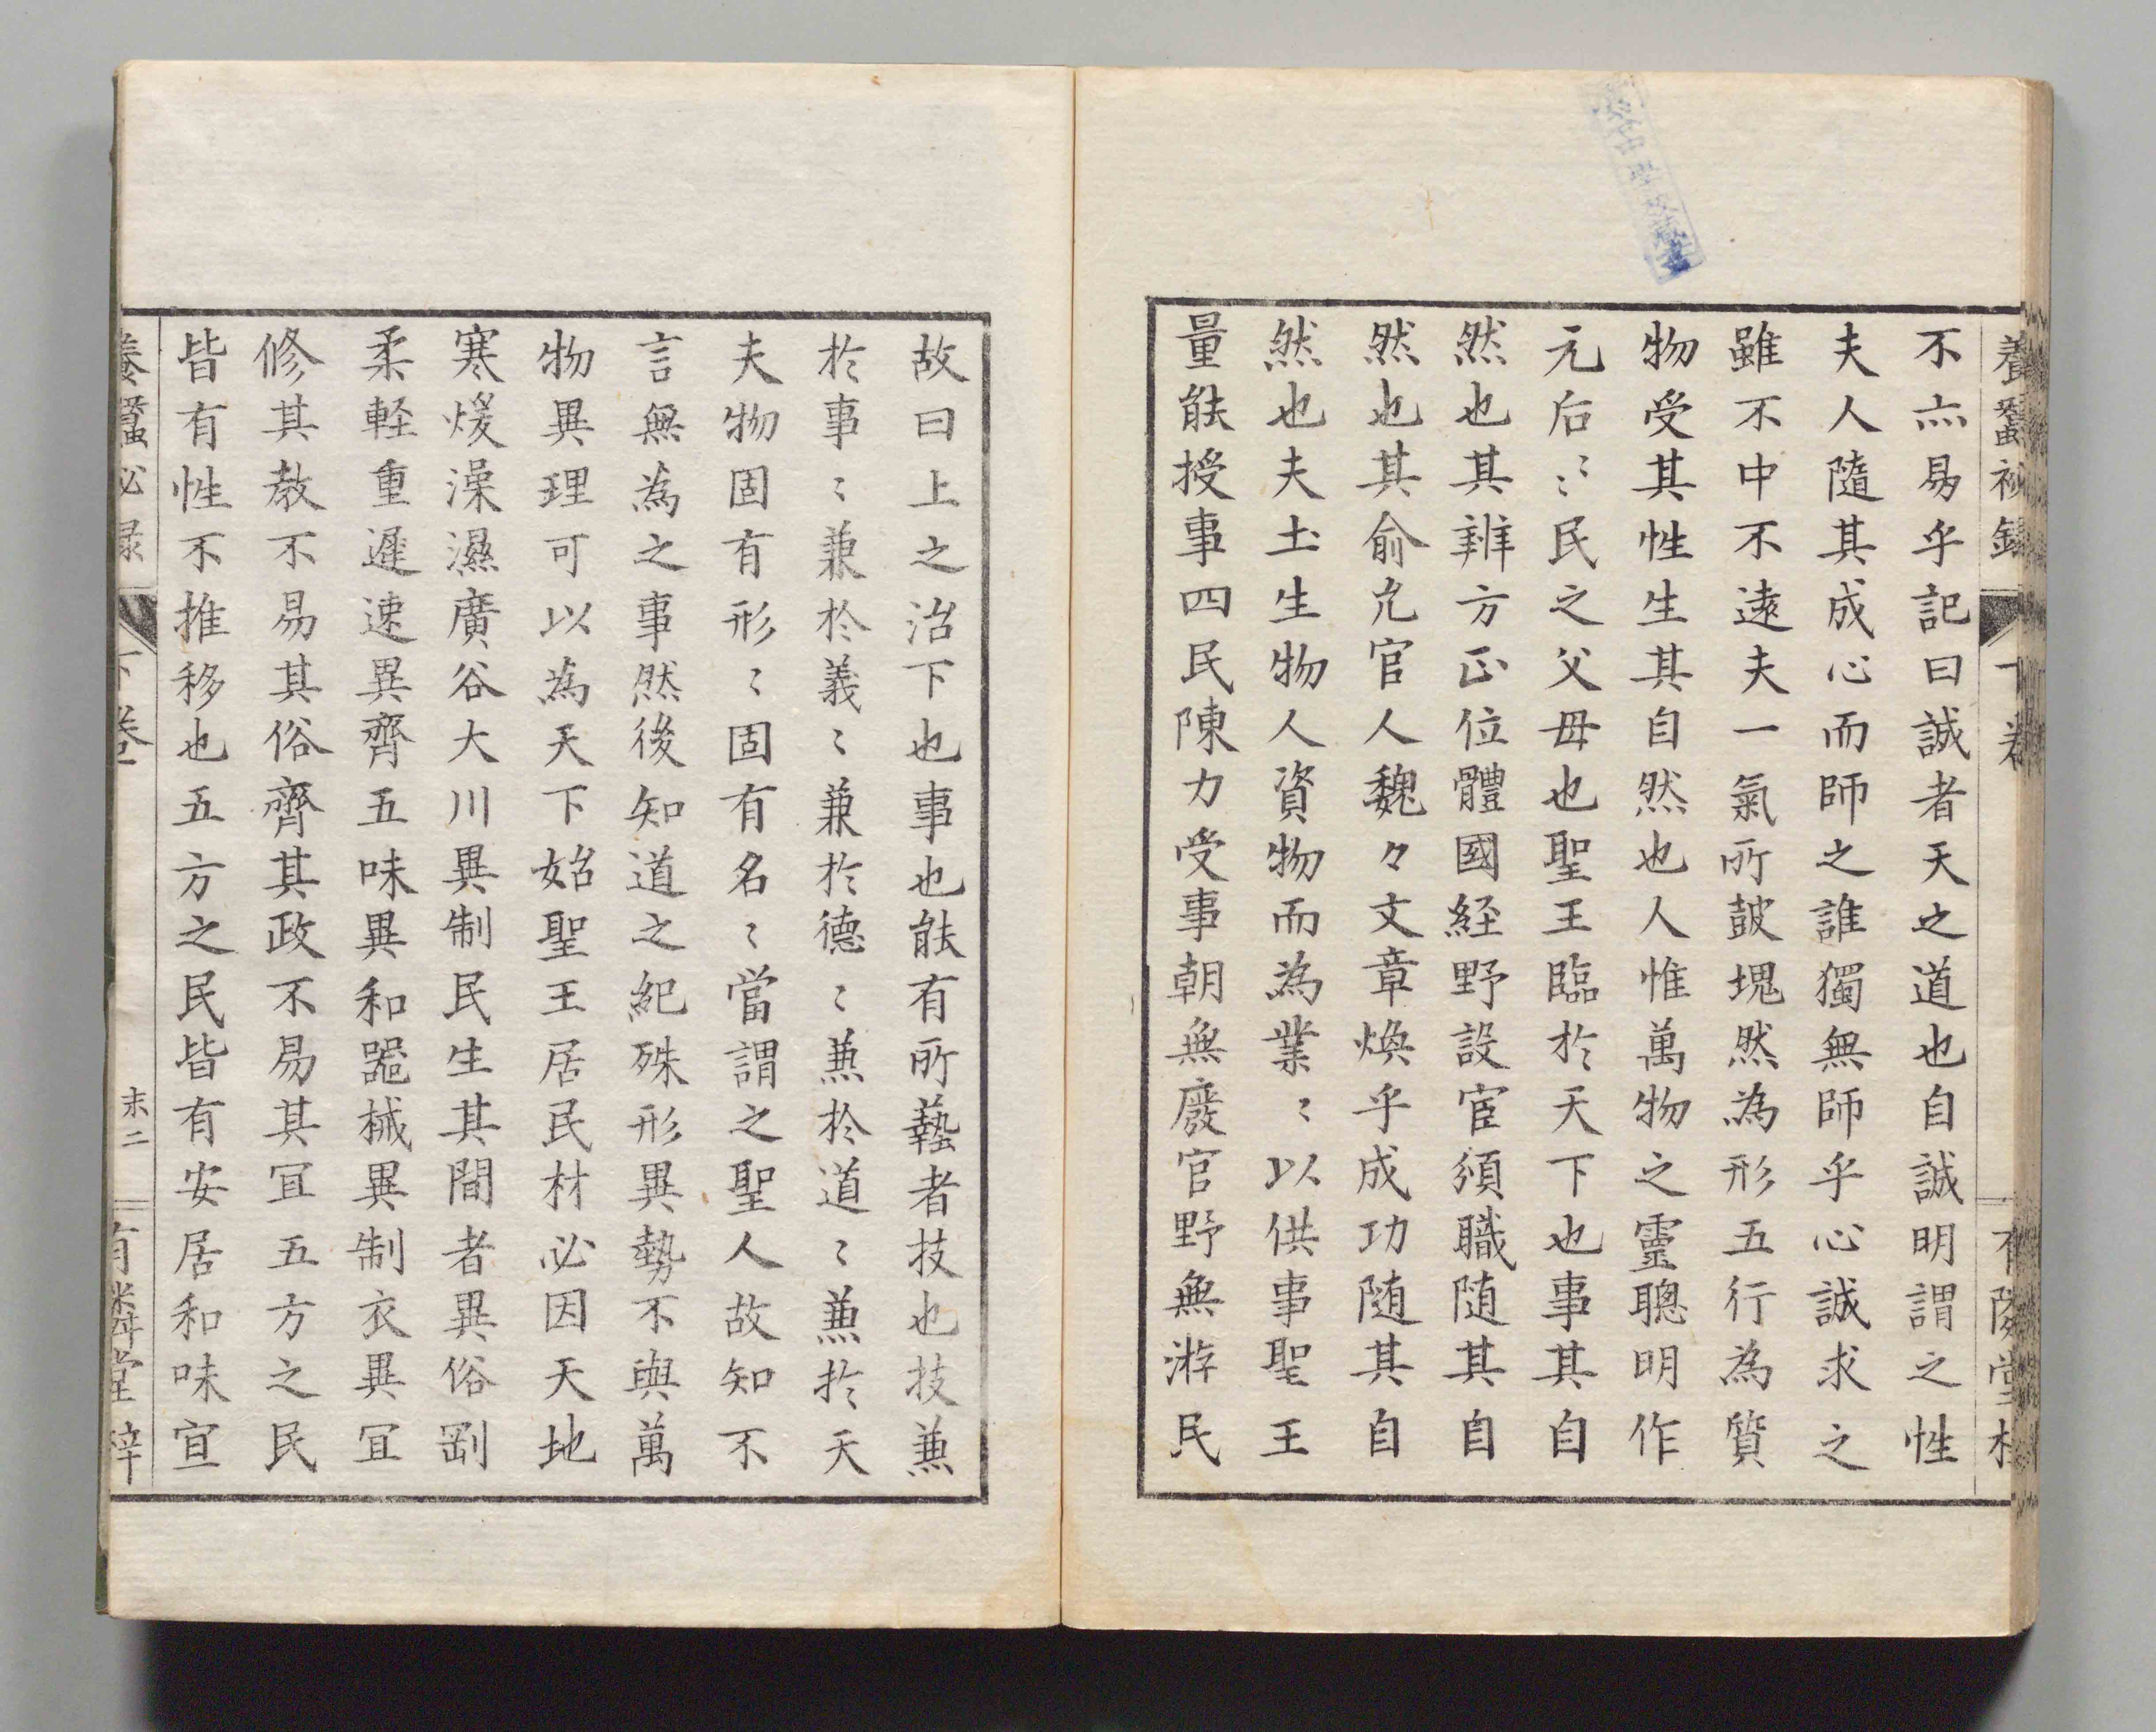 養蚕秘録
下卷
有隣堂梓
不亦易乎記曰誠者天之道也自誠明謂之性
夫人隨其成心而師之誰獨無師乎心誠求之
雖不中不遠夫一氣所皷塊然為形五行為質
物受其性生其自然也人惟萬物之靈聰明作
元后〻民之父母也聖王臨於天下也事其自
然也其辨方正位體國経野設官須職随其自
然也其俞允官人魏々文章煥乎成功随其自
然也夫土生物人資物而為業〻以供事聖王
量能授事四民陳力受事朝無廢官野無游民
故曰上之治下也事也能有所藝者技也技兼
於事〻兼於義〻兼於德〻兼於道〻兼於天
夫物固有形〻固有名〻當謂之聖人故知不
言無為之事然後知道之紀殊形異勢不與萬
物異理可以為天下始聖王居民材必因天地
寒煖澡濕廣谷大川異制民生其間者異俗剛
柔軽重遲速異齊五味異和器械異制衣異冝
修其教不易其俗齊其政不易其冝五方之民
皆有性不推移也五方之民皆有安居和味宜
養蠶必録
下卷
末二
有隣堂梓